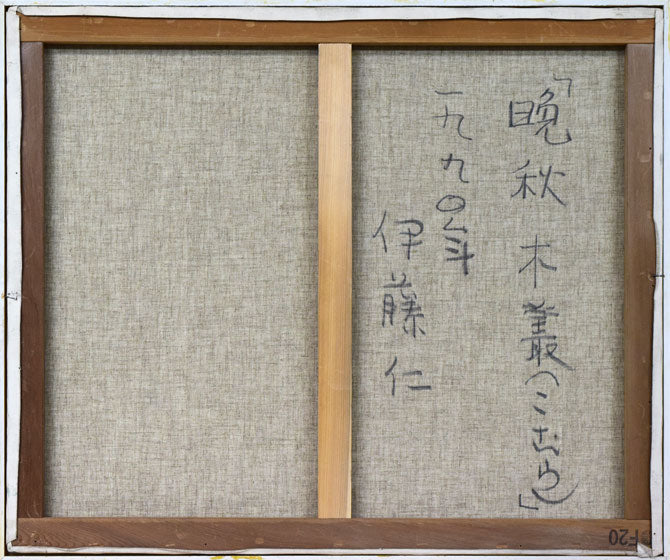 「晩秋 木叢(こむら)」
一九九〇年
伊藤仁
F20